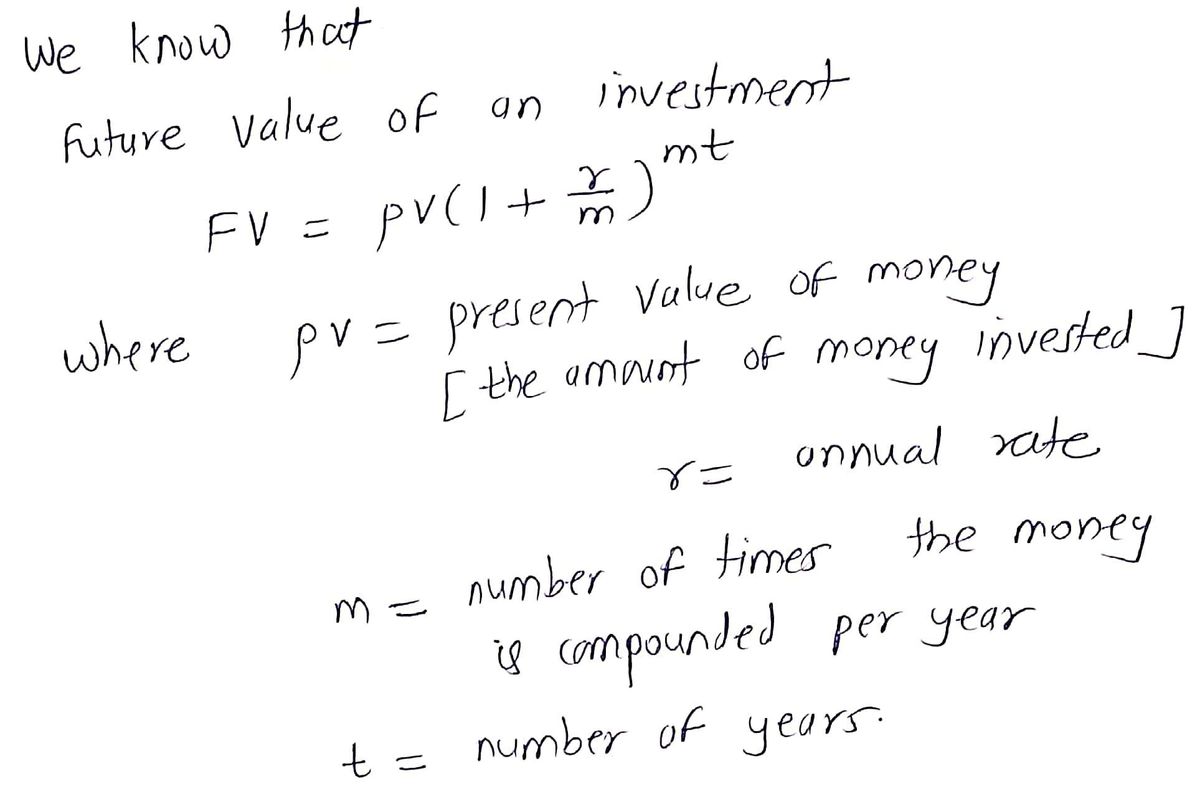 We know that
future value of an investment
FV = pv(1 + r/m)^mt
where pv = present value of money
[the amount of money invested]
r = annual rate
m = number of times the money
is compounded per year
t = number of years.